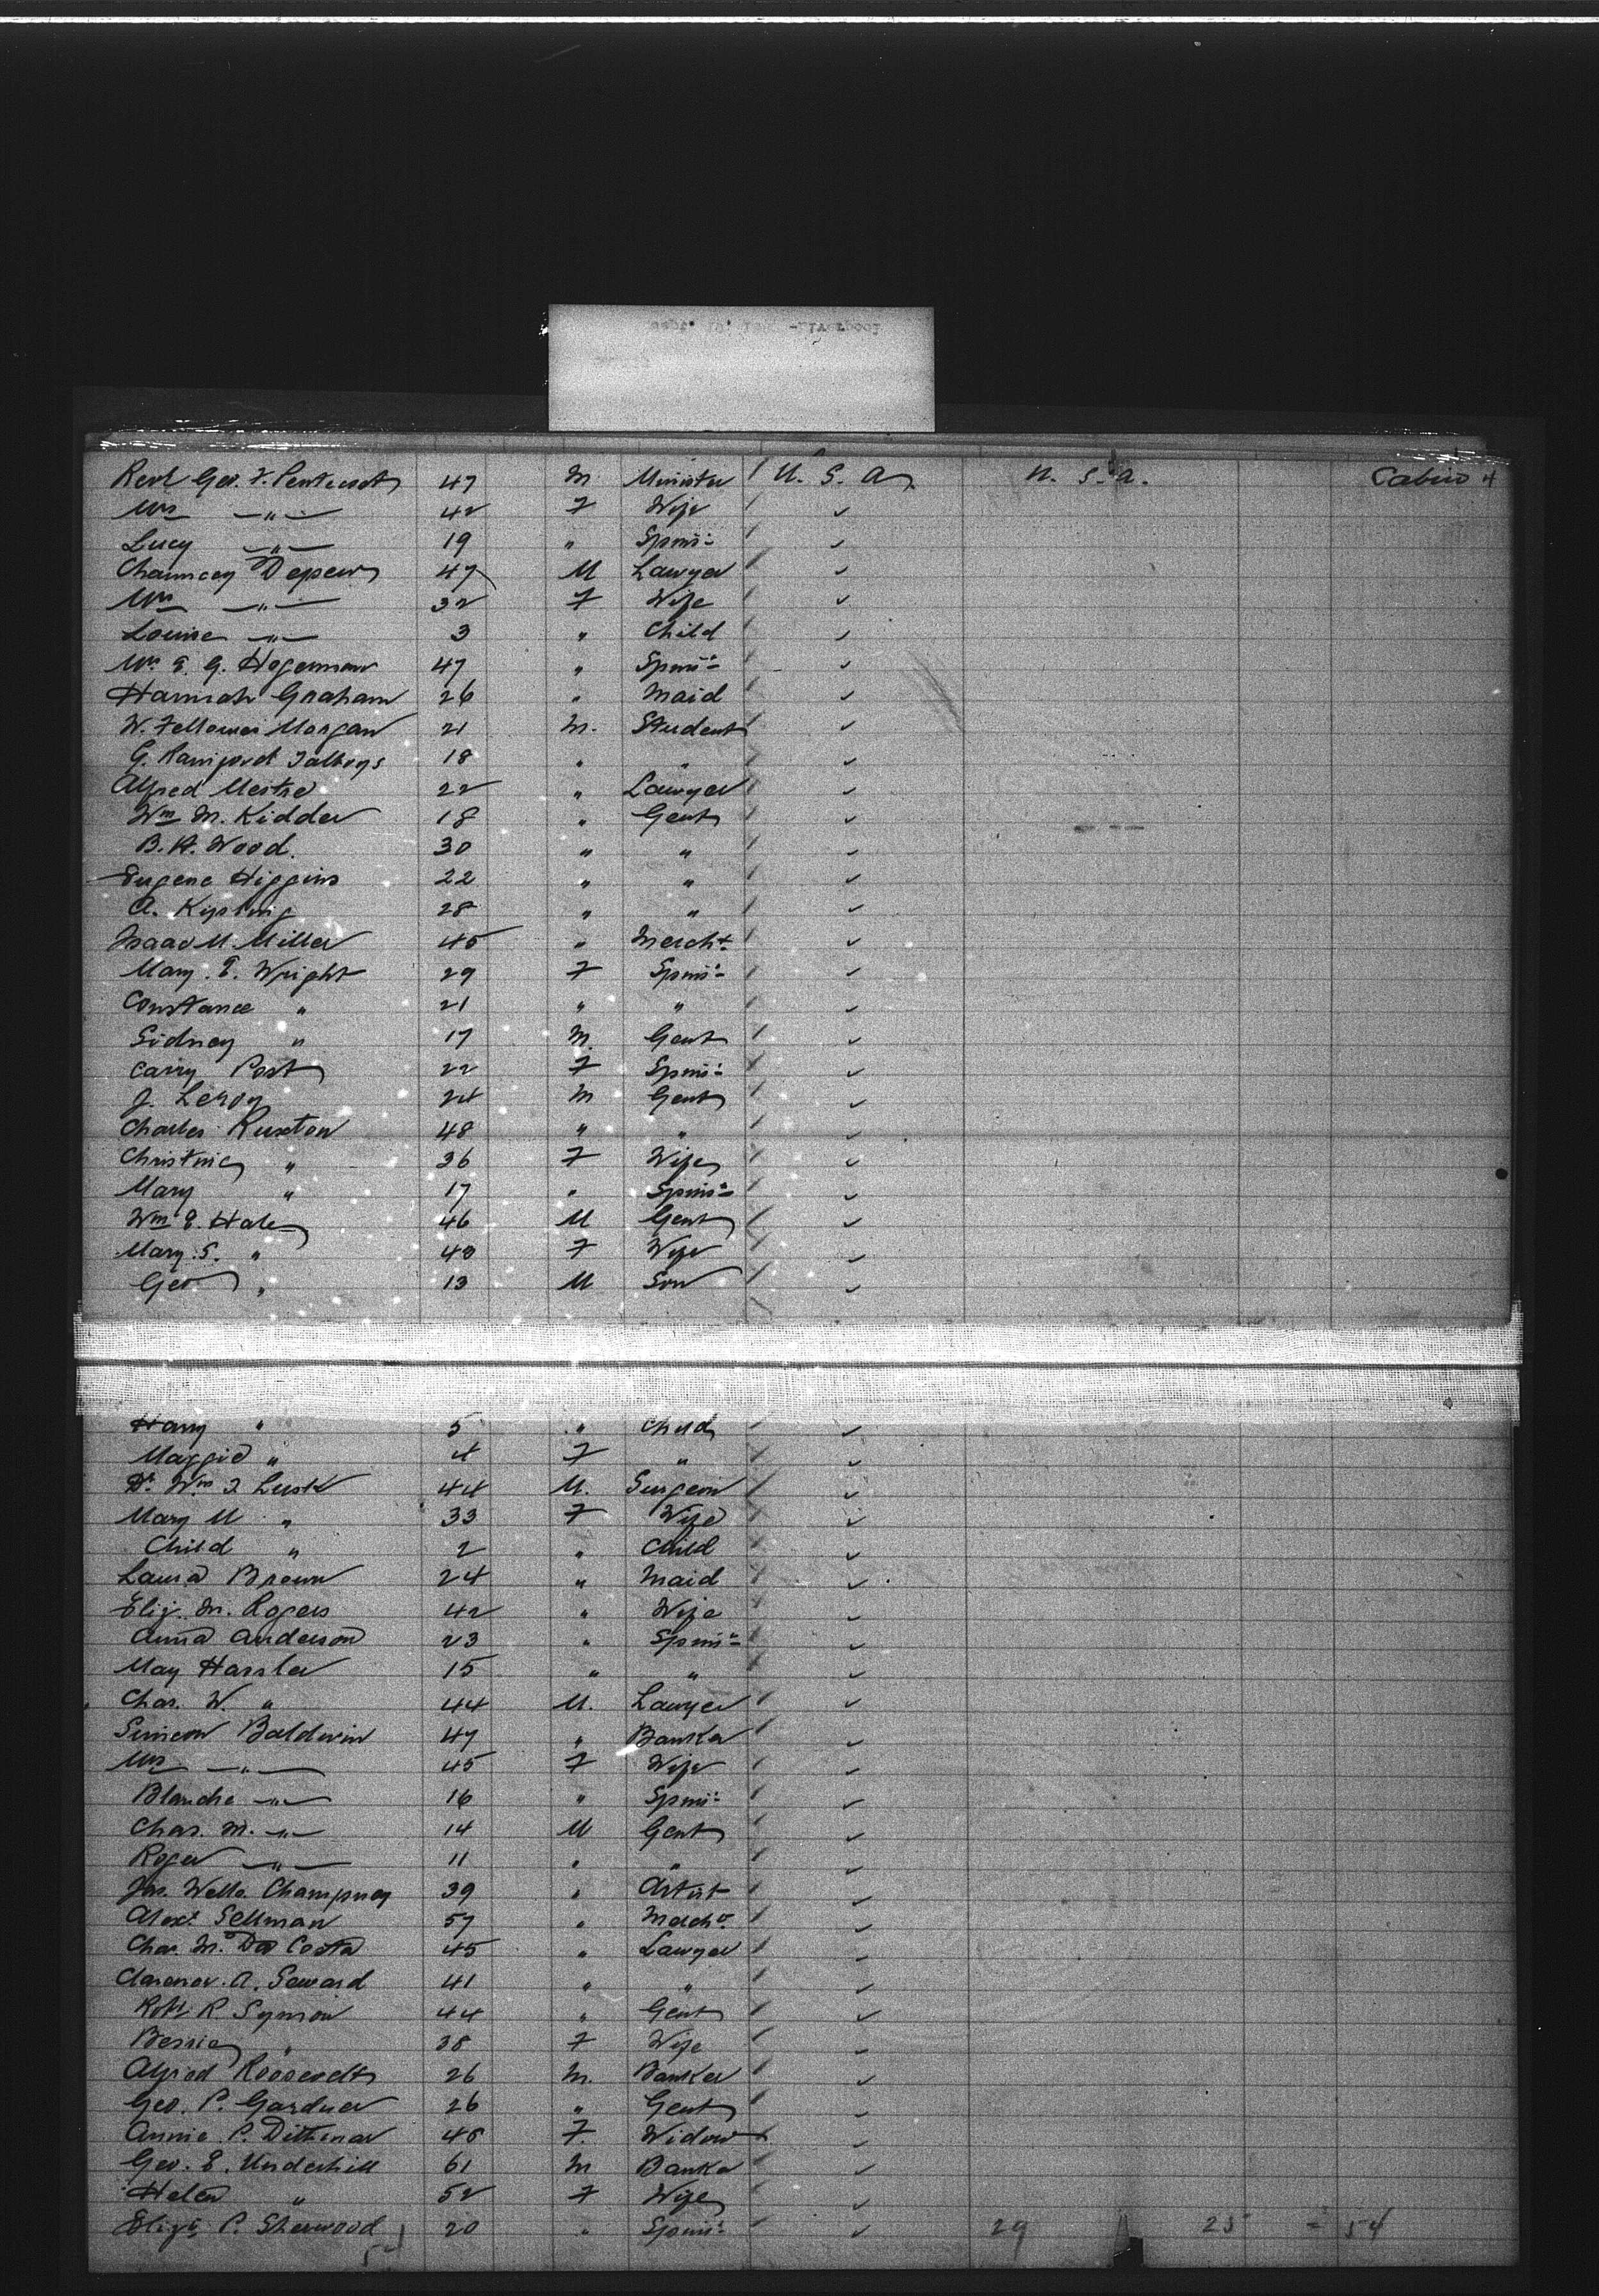 Sept. 10, 188 - Liverpool
Revd Geo. F. Pentecost 47 M Minister U. S. A. U. S. A. Cabin 4
Mrs —"— 42 F Wife ✓
Lucy —"— 19 " Spins: ✓
Chauncey Depew 47 M Lawyer ✓
Mrs —"— 32 F Wife ✓
Louise —"— 3 " Child ✓
E. G. Hogeman 47 " Spins: ✓
Hannah Graham 26 " Maid ✓
W. Fellowes Morgan 21 M. Student ✓
G. Talboys 18 " " ✓
Alfred Mestre 22 " Lawyer ✓
Wm M. Kidder 18 " Gent ✓
B. H. Wood. 30 " " ✓
Eugene Higgins 22 " " ✓
A. Kipling 28 " " ✓
Isaac M. Miller 45 " Mercht. ✓
Mary. E. Wright 29 F Spins: ✓
Constance " 21 " " ✓
Sidney " 17 M. Gent ✓
Carry Post 22 F Spins: ✓
J. Leroy 24 M Gent ✓
Charles Ruxton 48 " " ✓
Christina " 36 F Wife ✓
Mary " 17 " Spins: ✓
Wm E. Hale 46 M Gent ✓
Mary. S. " 40 F Wife ✓
Geo " 13 M Son ✓
Harry " 5 " Child ✓
Maggie " 4 F " ✓
Dr. Wm T Lusk 44 M. Surgeon ✓
Mary M " 33 F Wife ✓
Child " 2 " Child ✓
Laura Brown 24 " Maid ✓
Eliz. M. Rogers 42 " Wife ✓
Anna Anderson 23 " Spins: ✓
May Hassler 15 " " ✓
Chas. W. " 44 M. Lawyer ✓
Simeon Baldwin 47 " Banker ✓
Mrs —"— 45 F Wife ✓
Blanche —"— 16 " Spins: ✓
Chas. M. —"— 14 M Gent ✓
Roger —"— 11 " " ✓
Jas. Wells Champney 39 " Artist ✓
Alexr Sellman 57 " Mercht. ✓
Chas. M. Da Costa 45 " Lawyer ✓
Clarence. A. Seward 41 " " ✓
Robt R. Symon 44 " Gent ✓
Bessie " 38 F Wife ✓
Alfred Roosevelt 26 M. Banker ✓
Geo. P. Gardner 26 " Gent ✓
Annie P. 46 F. Widow ✓
Geo. E. Underhill 61 M Banker ✓
Helen " 52 F Wife ✓
Elizth P. Sherwood 20 " Spins: ✓ 29 25 = 54
54